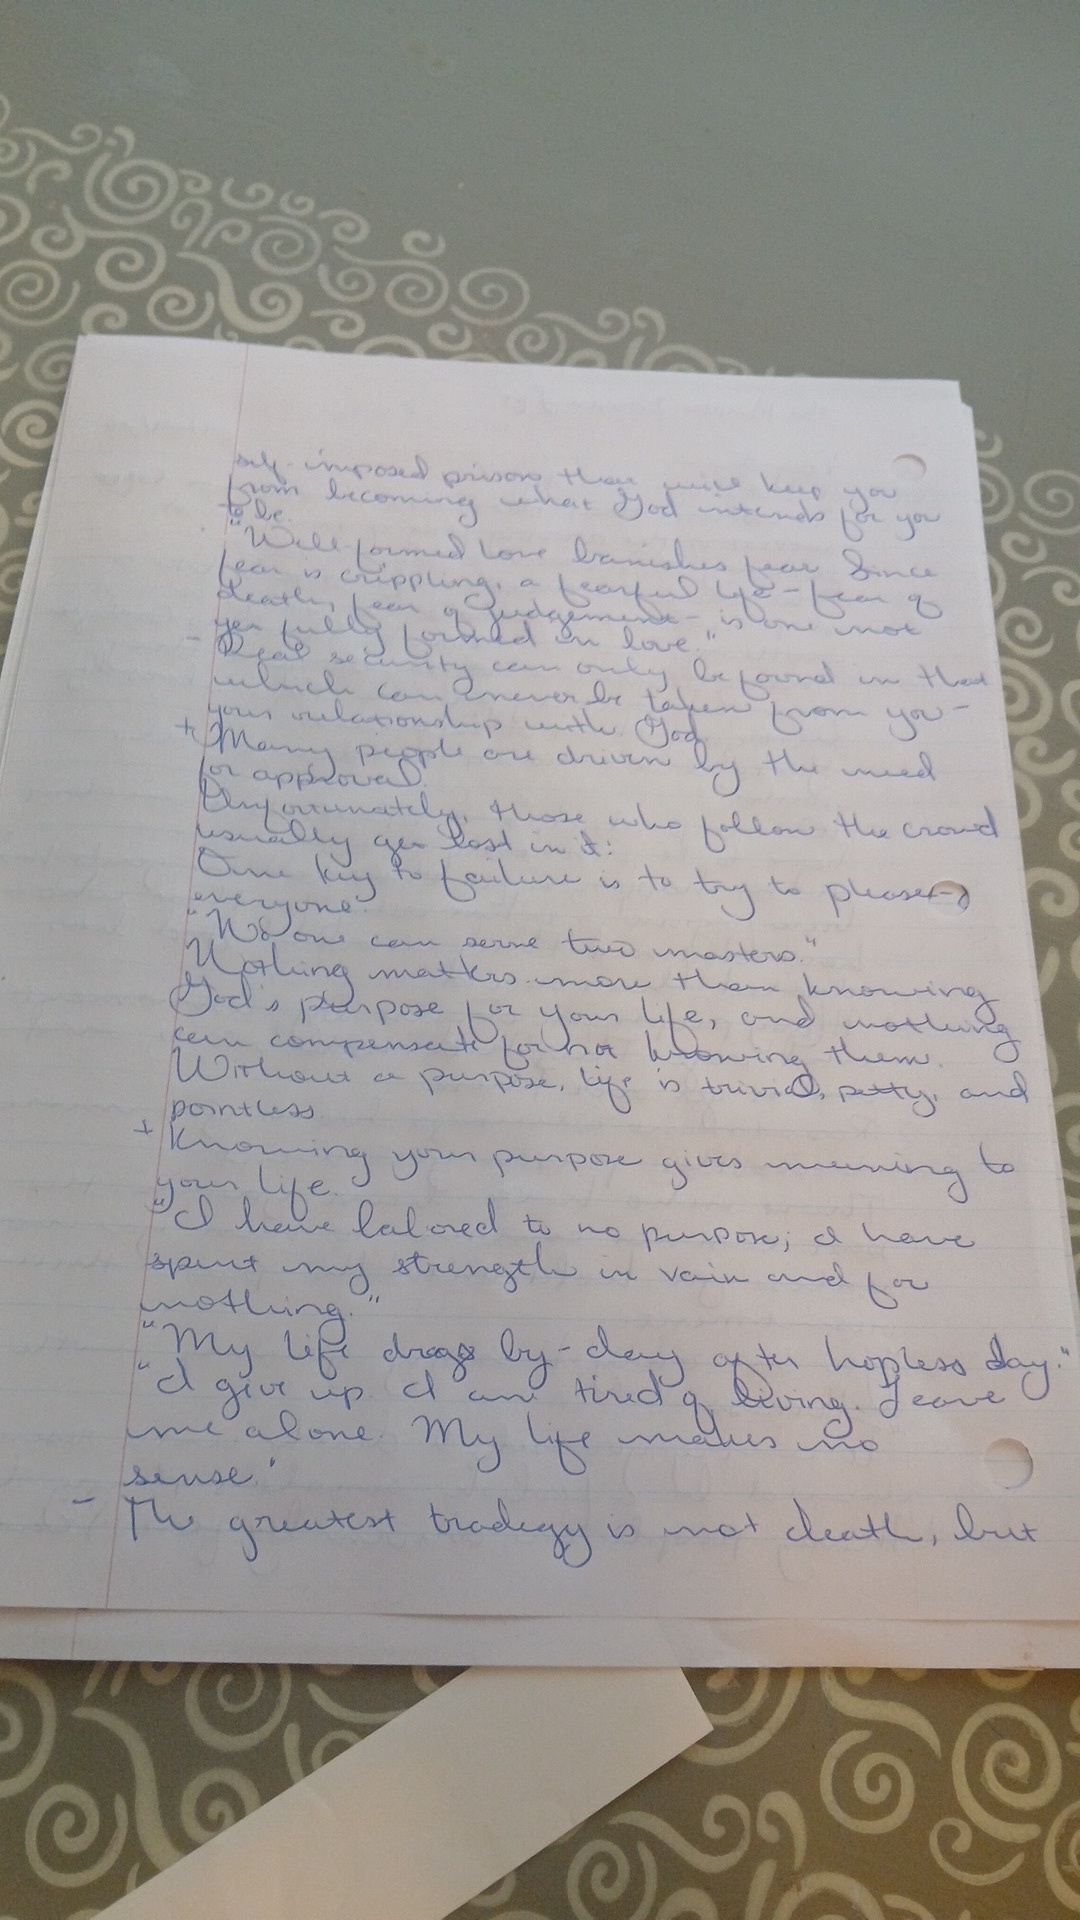 self-imposed prison that will keep you
from becoming what God intends for you
to be.
"Well-formed love banishes fear. Since
fear is crippling, a fearful life - fear of
death, fear of judgement - is one not
yet fully formed in love."
- Real security can only be found in that
which can never be taken from you -
your relationship with God.
+ Many people are driven by the need
for approval.
Unfortunately, those who follow the crowd
usually get lost in it:
One key to failure is to try to please
everyone.
"No one can serve two masters."
Nothing matters more than knowing
God's purpose for your life, and nothing
can compensate for not knowing them.
Without a purpose, life is trivial, petty, and
pointless.
+ Knowing your purpose gives meaning to
your life.
"I have labored to no purpose; I have
spent my strength in vain and for
nothing."
"My life drags by - day after hopless day."
"I give up. I am tired of living. Leave
me alone. My life makes no
sense."
- The greatest tradegy is not death, but